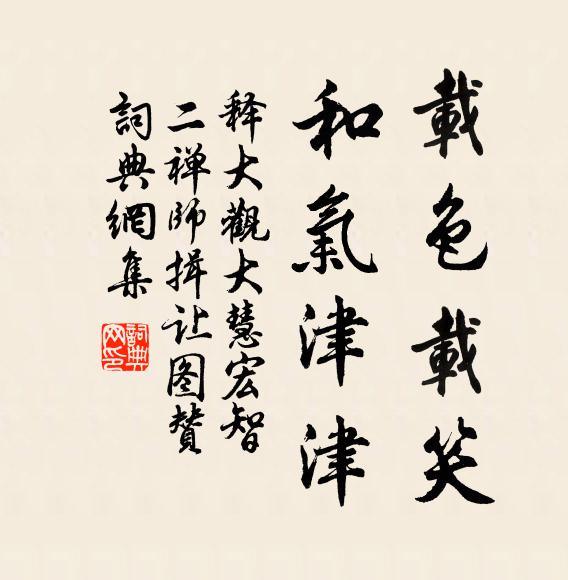 載色載笑
和氣津津
释大觀大慧宏智
二禅師揖让图贊
詞典網集
詞典
网印